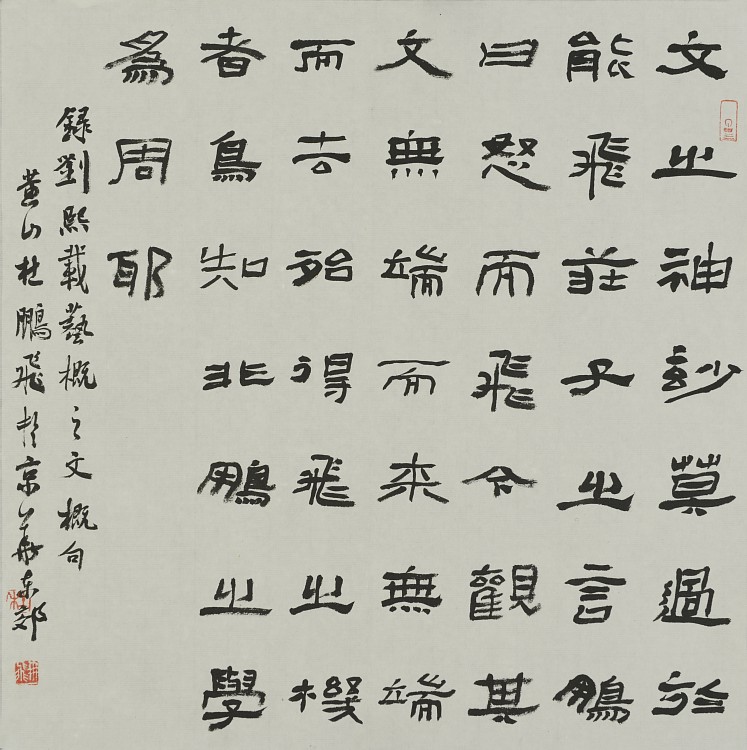 文之神玅莫過於
能飛莊子之言鵬
曰怒而飛今觀其
文無端而来無端
而去殆得飛之機
者烏知非鵬之學
為周耶
録劉熙載藝概之文概句
黄山杜鵬飛於京華东郊